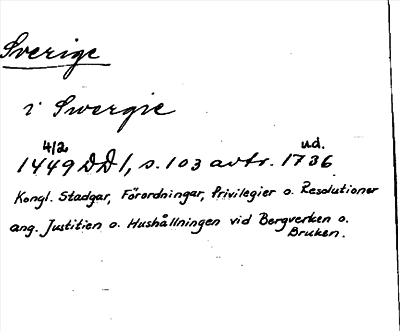 Sverige
i Swergie
4/2 ud.
1449 DD 1, s. 103 avtr. 1736
Kongl. Stadgar, Förordningar, Privilegier o. Resolutioner
ang. Justitien o. Hushållningen vid Bergverken o.
Bruken.